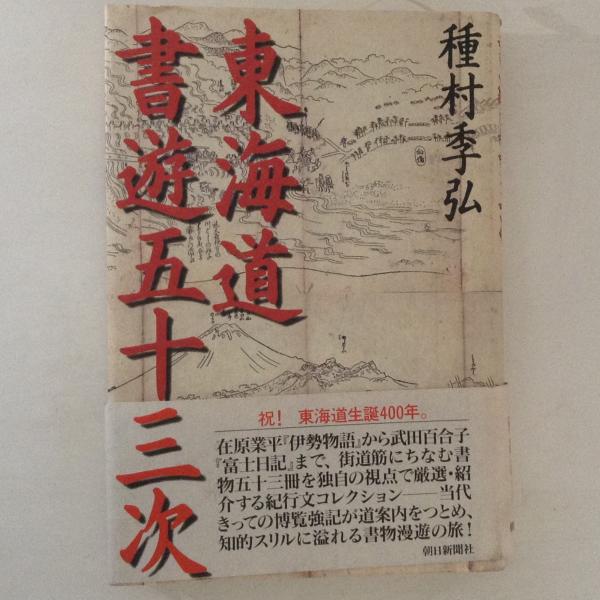 種村季弘
東海道
書遊五十三次
祝! 東海道生誕400年。
在原業平『伊勢物語』から武田百合子
『富士日記』まで、街道筋にちなむ書
物五十三冊を独自の視点で厳選・紹
介する紀行文コレクション――当代
きっての博覧強記が道案内をつとめ、
知的スリルに溢れる書物漫遊の旅!
朝日新聞社